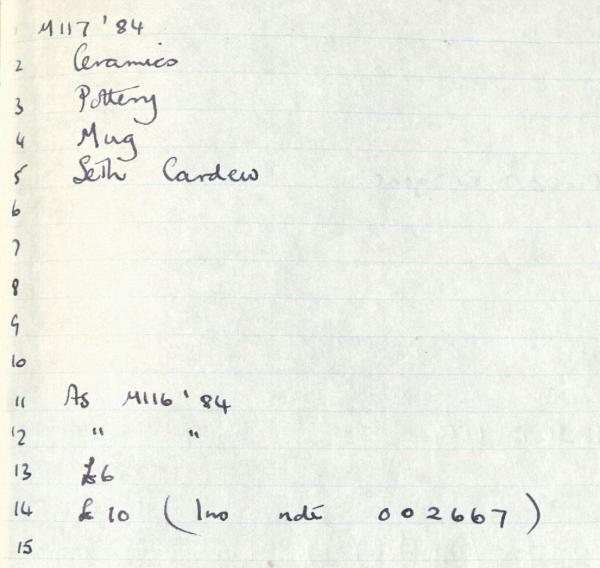 1 M117 '84
2 Ceramics
3 Pottery
4 Mug
5 Seth Cardew
6
7
8
9
10
11 As M116 '84
12 " "
13 £6
14 £10 (Ino note 002667)
15